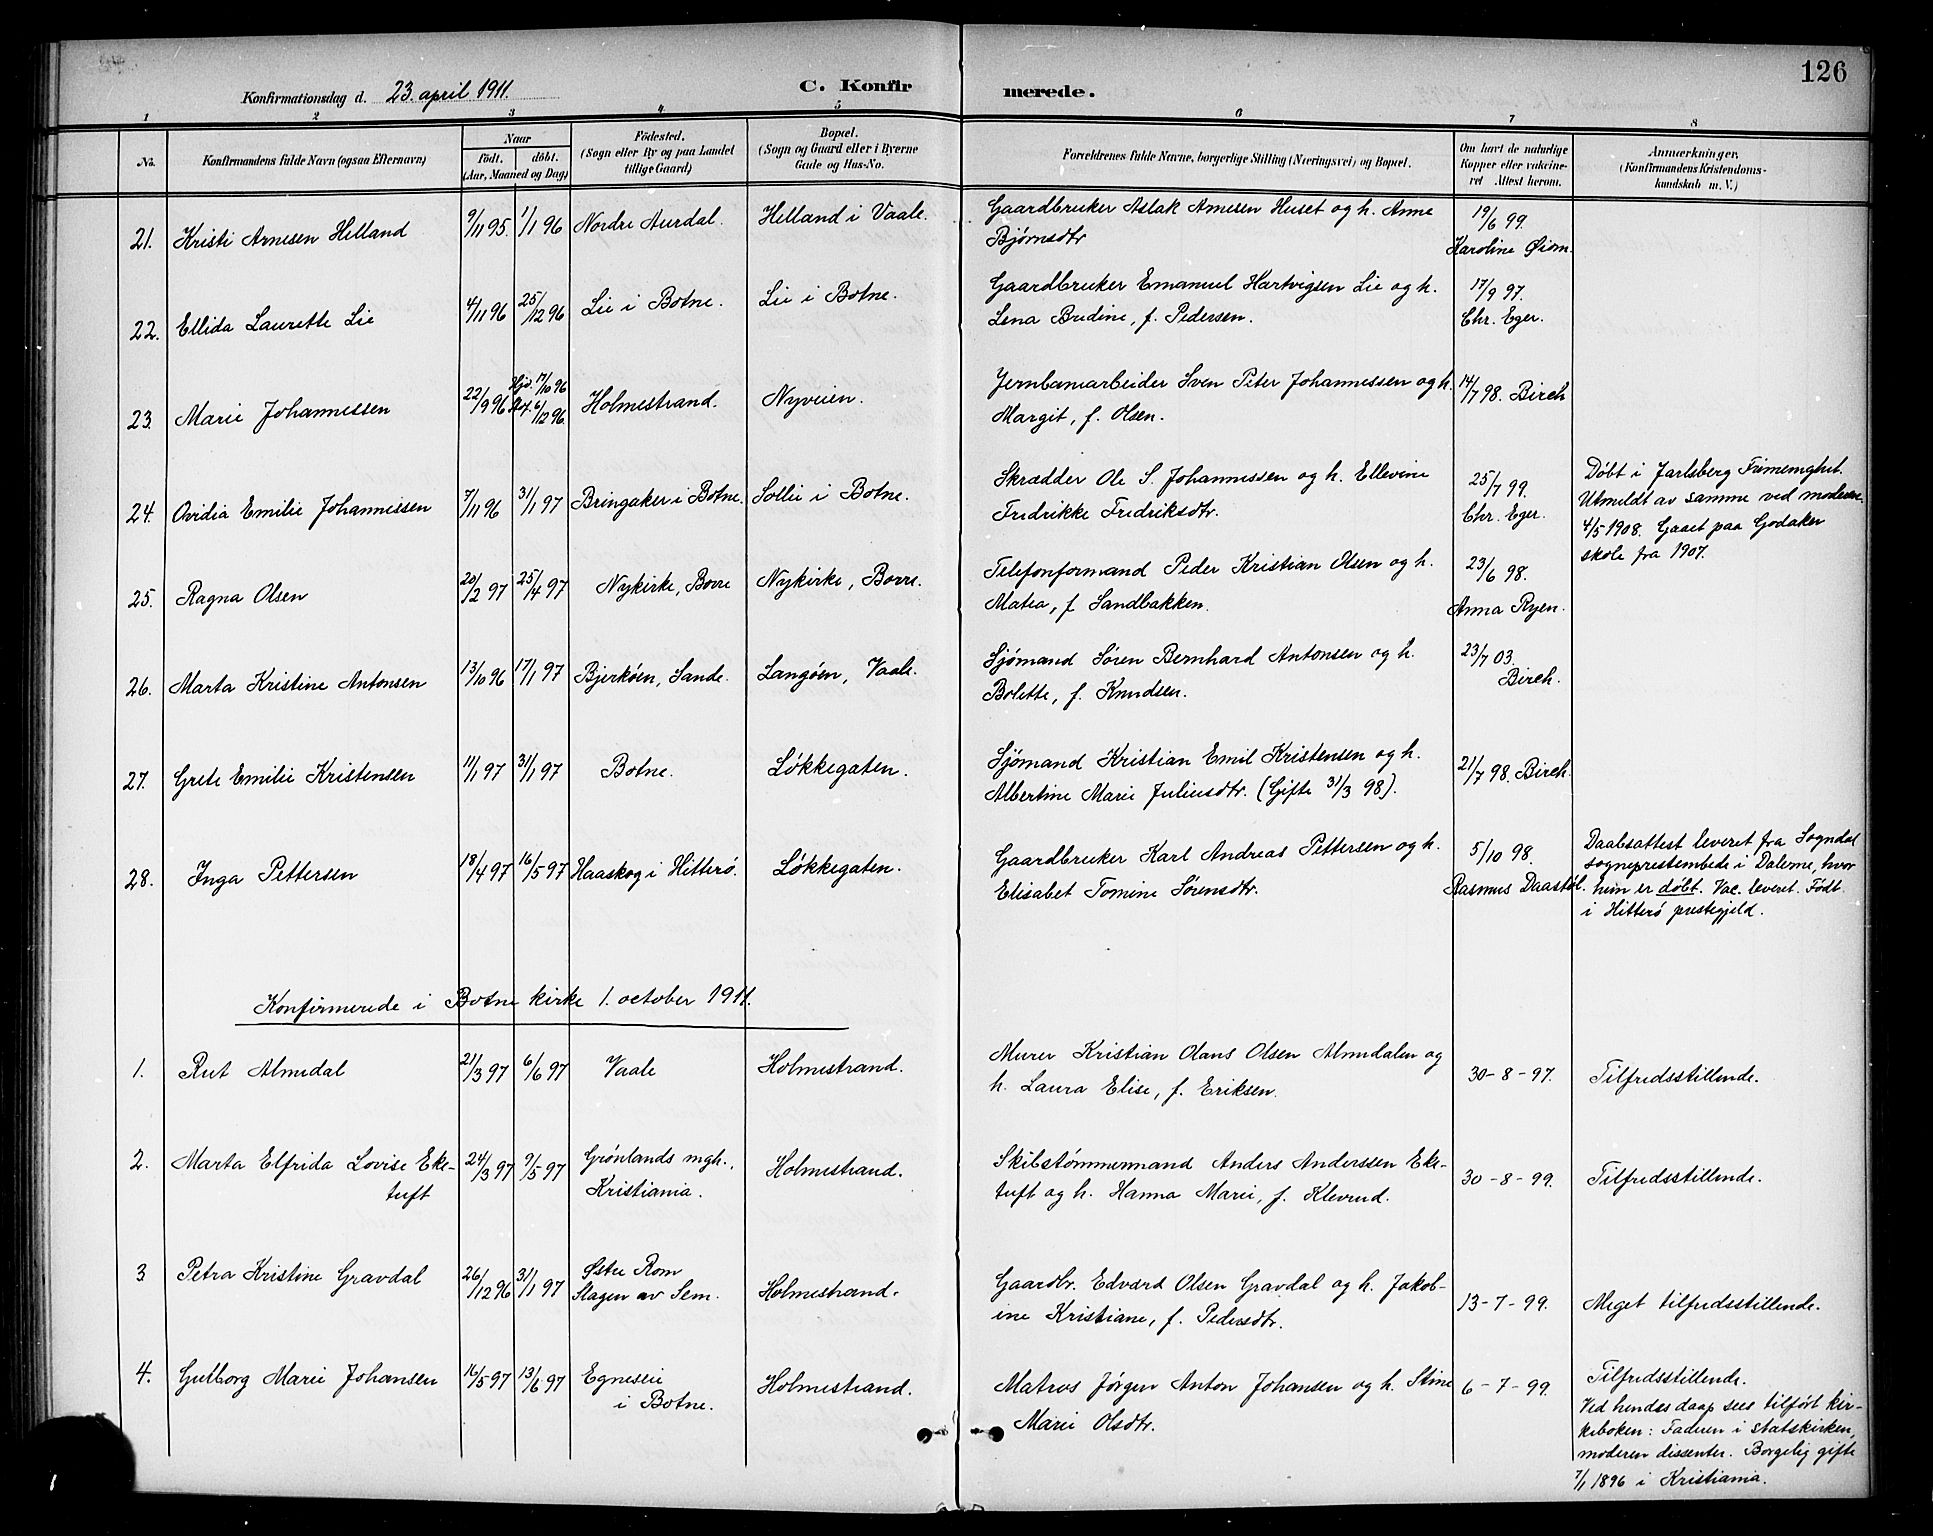 126
Konfirmationsdag d. 23. april 1911.
C. Konfirmerede.
1 2 3 4 5 6 7 8
No. Konfirmandens fulde Navn (ogsaa Efternavn) Naar födt. döbt. (Aar, Maaned og Dag) Födested. (Sogn eller By og paa Landet tillige Gaard) Bopæl. (Sogn og Gaard eller i Byerne Gade og Hus-No. Forældrenes fulde Navne, borgerlige Stilling (Næringsvei) og Bopæl. Om havt de naturlige Kopper eller vaccineret Attest herom. Anmærkninger, (Konfirmandens Kristendomskundskab m. V.)
21. Kristi Arnesen Helland 9/11 95. 1/1 96 Nordre Aurdal. Helland i Vaale. Gaardbruker Aslak Arnesen Huset og h. Anne
Bjørnsdtr 19/6 99. Karoline Øiom.
22. Ellida Laurette Lie 4/11 96 25/12 96 Lie i Botne. Lie i Botne. Gaardbruker Emanuel Hartvigsen Lie og h.
Lena Budine, f. Pedersen. 17/9 97. Chr. Eger.
23. Marie Johannessen 22/9 96 Hjd. 17/10 96 Stf. 6/12 96. Holmestrand. Nyveien. Jernbanearbeider Sven Peter Johannessen og h.
Margit, f. Olsen. 14/7 98. Birch
24. Ovidia Emilie Johannessen 7/11 96 31/1 97 Bringaker i Botne. Sollie i Botne. Skrædder Ole S. Johannessen og h. Ellevine
Fredrikke Fredriksdtr. 25/7 99. Chr. Eger. Døbt i Jarlsberg Frimenighet.
Utmeldt av samme ved moderen
4/5 1908. Gaaet paa Godaker
skole fra 1907.
25. Ragna Olsen 20/2 97 25/4 97 Nykirke, Borre Nykirke, Borre. Telefonformand Peder Kristian Olsen og h.
Matea, f. Sandbakken. 23/6 98. Anna Ryen.
26. Marta Kristine Antonsen 13/10 96 17/1 97 Bjerkøen, Sande. Langøen, Vaale. Sjømand Søren Bernhard Antonsen og h.
Bolette, f. Knudsen. 23/7 03. Birch.
27. Grete Emilie Kristensen 11/1 97 31/1 97 Botne. Løkkegaten. Sjømand Kristian Emil Kristensen og h.
Albertine Marie Juliusdtr. (Gifte 31/3 98). 21/7 98. Birch.
28. Inga Pettersen 18/4 97 16/5 97 Haaskog i Hitterø. Løkkegaten. Gaardbruker Karl Andreas Pettersen og h.
Elisabet Tomine Sørensdtr. 5/10 98. Rasmus Daastøl. Daabsattest leveret fra Sogndal
sogneprestembede i Dalerne, hvor
hun er døbt. Vac. leveret. Født
i Hitterø prestegjeld.
Konfirmerede i Botne kirke 1. october 1911.
1. Rut Almedal 21/3 97 6/6 97 Vaale Holmestrand. Murer Kristian Olaus Olsen Almedalen og
h. Laura Elise, f. Eriksen. 30-8-97. Tilfredsstillende.
2. Marta Elfrida Lovise Eke-
tuft 24/3 97 9/5 97 Grønlands mgh., Kristiania. Holmestrand. Skibstømmermand Anders Anderssen Eke-
tuft og h. Hanna Marie, f. Klevrud. 30-8-99. Tilfredsstillende.
3 Petra Kristine Gravdal 26/12 96 31/1 97 Østre Rom Slagen av Sem. Holmestrand. Gaardbr. Edvard Olsen Gravdal og h. Jakob-
ine Kristiane, f. Pedersdtr. 13-7-99. Meget tilfredsstillende.
4. Gulborg Marie Johansen 16/5 97 13/6 97 Egneseie i Botne. Holmestrand. Matros Jørgen Anton Johansen og h. Stine
Marie Olsdtr. 6-7-99. Tilfredsstillende.
Ved hendes daap sees tilført kir-
keboken: Faderen i statskirken,
moderen dissenter. Borgelig gifte
7/1 1896 i Kristiania.